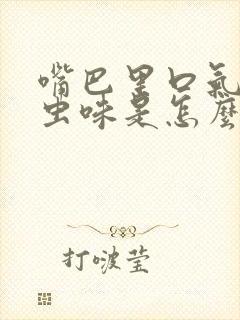 嘴巴里口氣
虫味是怎麼
打啵莹